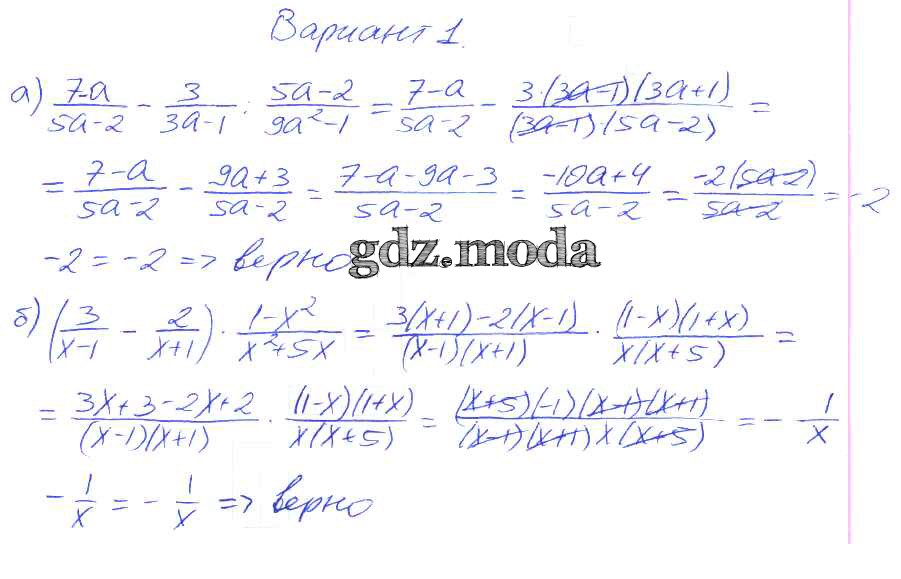 Вариант 1.
а) (7-a)/(5a-2) - 3/(3a-1) : (5a-2)/(9a²-1) = (7-a)/(5a-2) - (3·(3a-1)(3a+1))/((3a-1)·(5a-2)) =
= (7-a)/(5a-2) - (9a+3)/(5a-2) = (7-a-9a-3)/(5a-2) = (-10a+4)/(5a-2) = (-2(5a-2))/(5a-2) = -2
-2 = -2 => верно
gdz.moda
б) (3/(x-1) - 2/(x+1)) · (1-x²)/(x²+5x) = (3(x+1)-2(x-1))/((x-1)(x+1)) · ((1-x)(1+x))/(x(x+5)) =
= (3x+3-2x+2)/((x-1)(x+1)) · ((1-x)(1+x))/(x(x+5)) = ((x+5)(-1)(x-1)(x+1))/((x-1)(x+1)x(x+5)) = - 1/x
- 1/x = - 1/x => верно